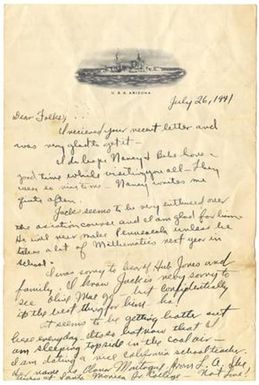 U.S.S. ARIZONA
July 26, 1941
Dear Folks,
I recieved your recent letter and
was very glad to get it —
I do hope Nancy & Babe have a
good time while visiting you all — They
were so nice to me — Nancy writes me
quite often.
Jack seems to be very enthused over
the aviation courses and I am glad for him
He will never make Pensacola unless he
takes a lot of Mathematics next year in
school.
I was sorry to hear of Hub Jones and
family. I know Jack is very sorry to
see Olive Mae go but confidentially
it's the best thing for him, he!
It seems to be getting hotter out
here everyday. It is so hot now that I
am sleeping topside in the cool air —
I am dating a nice California school teacher
Her name is
at Santa Monica Not fine!